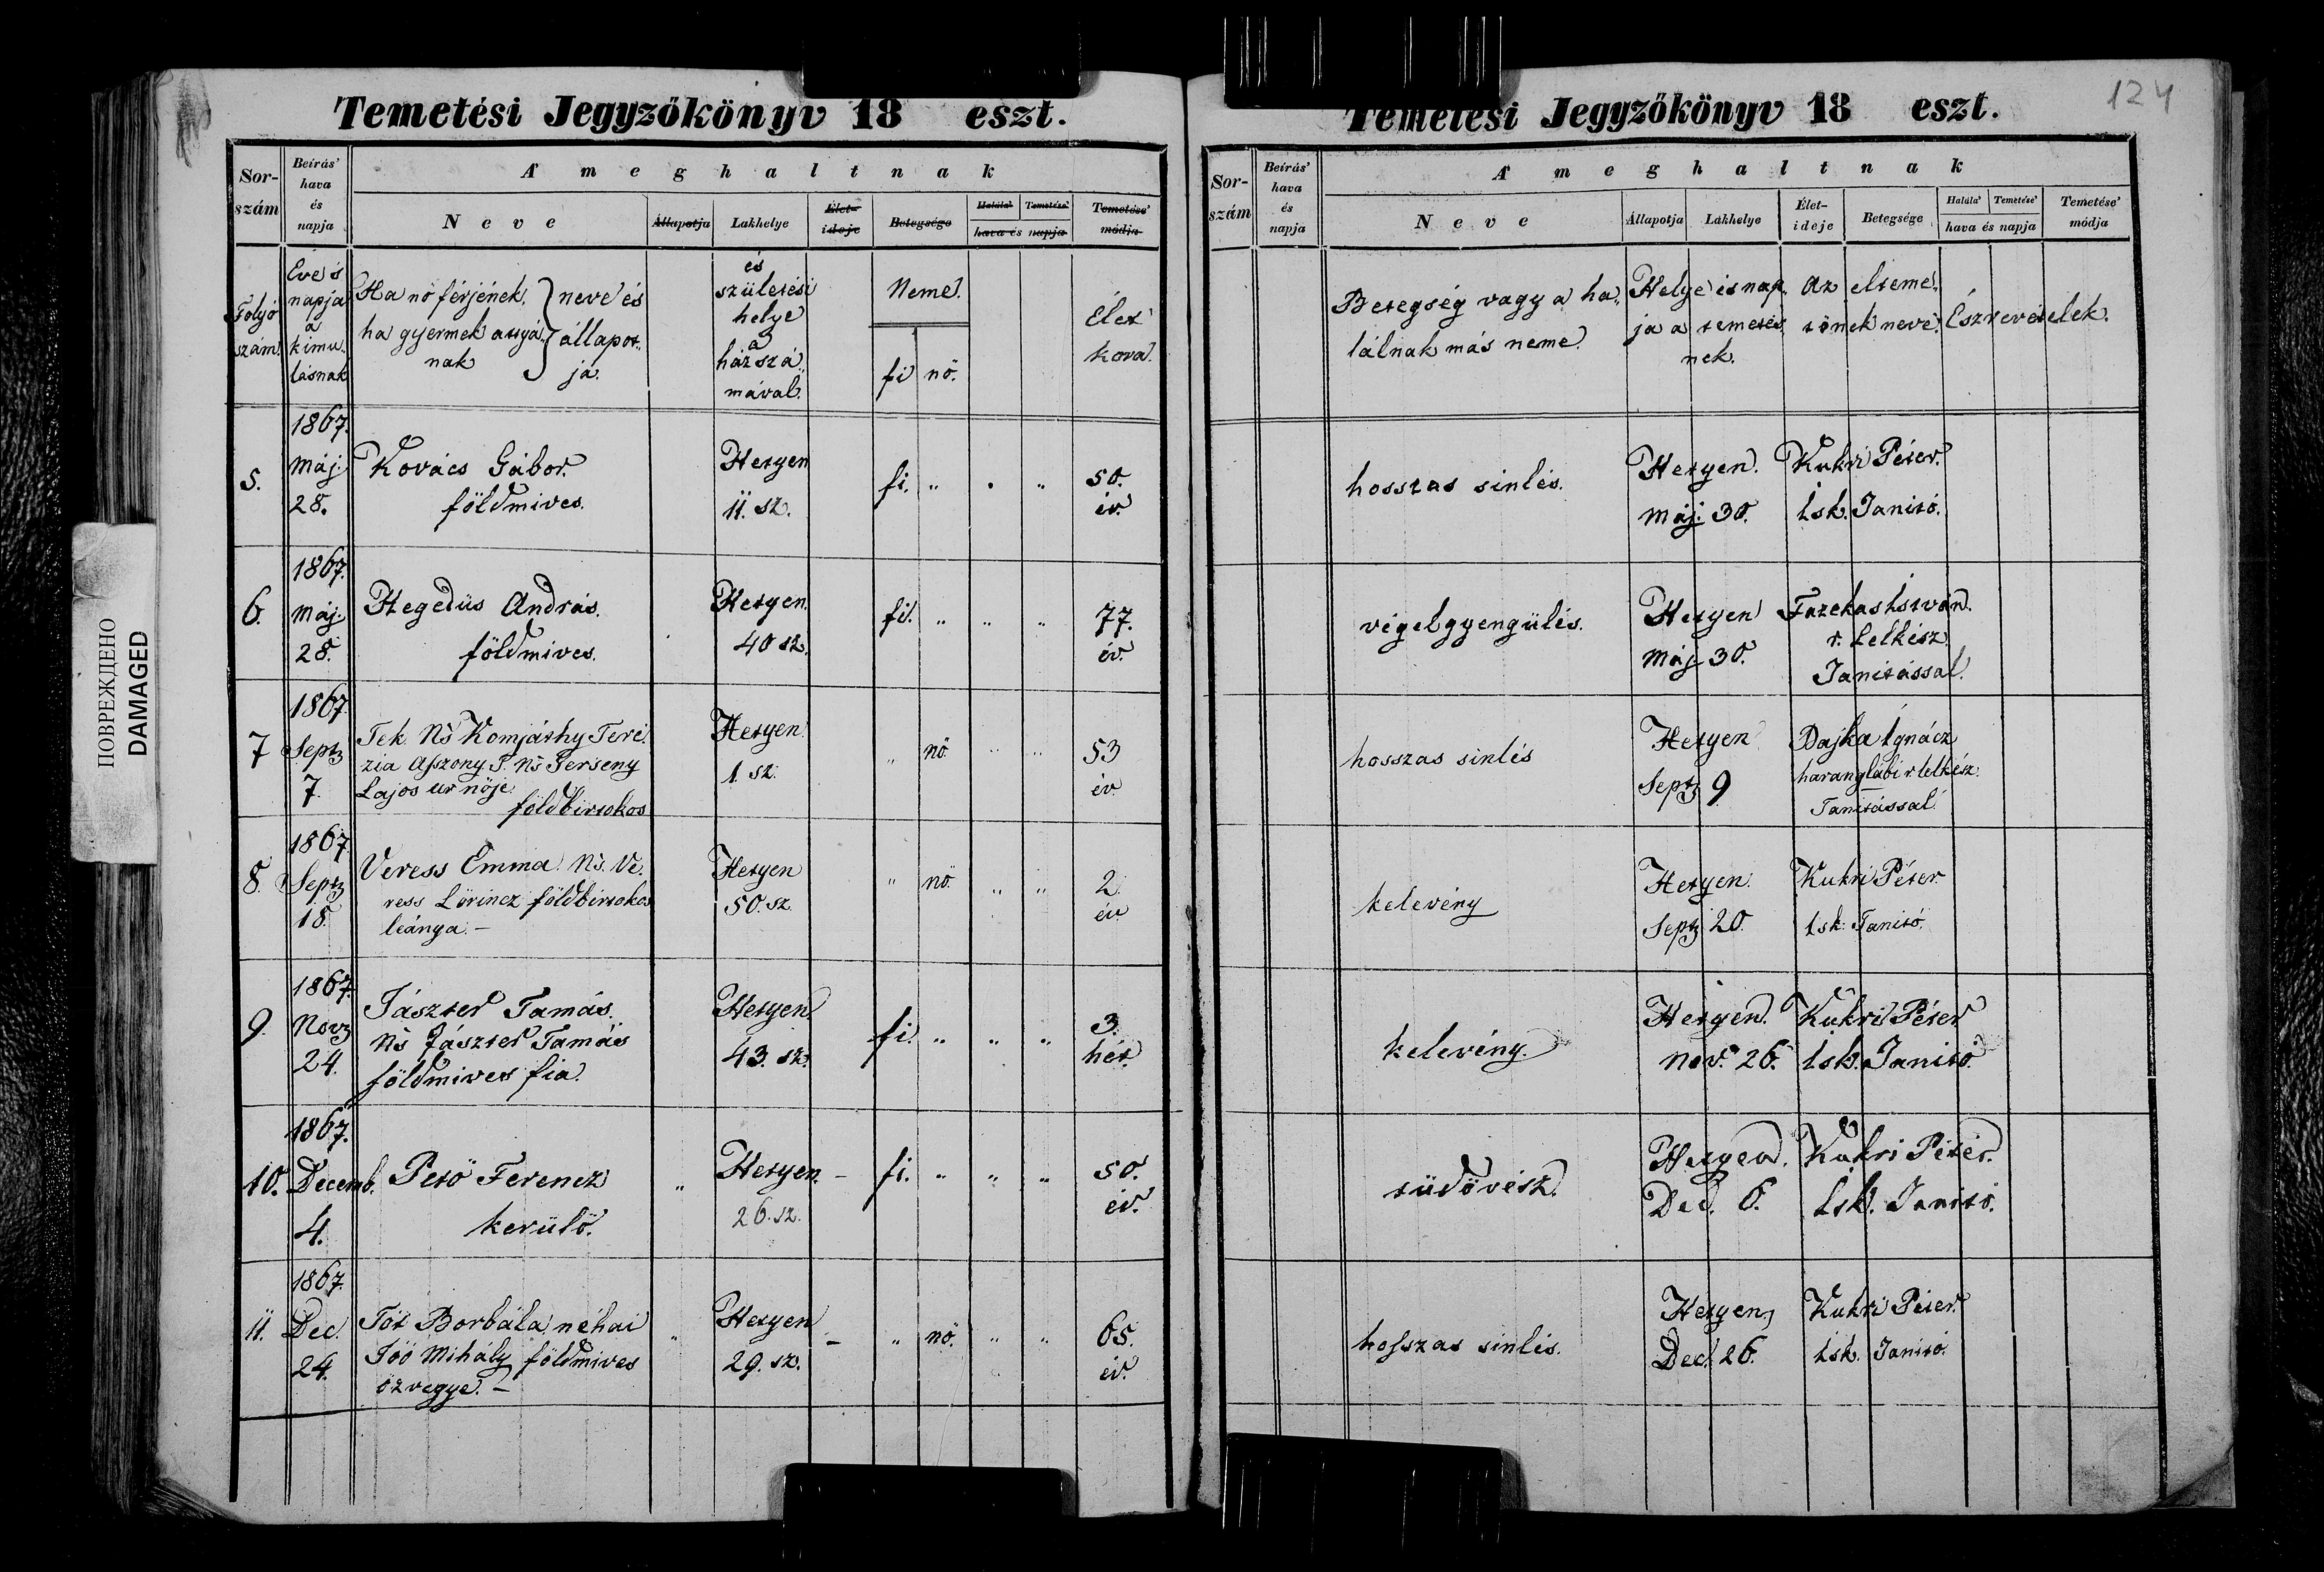 Temetési Jegyzőkönyv 18 eszt.
Sor-szám
Beírás' hava és napja
A' meghaltnak
Neve
Állapotja
Lakhelye
Élet-ideje
Betegsége
Halála' Temetése'
hava és napja
Temetése' módja
Folyó szám.
Éve és napja a kimulásnak
Ha nő férjének,
ha gyermek attyá-
nak
neve és
állapot-
já.
és
születési
helye
a
ház szá-
mával.
Neme.
fi nő.
Élet
kora.
5.
1867.
Máj.
28.
Kovács Gábor.
földmives.
Hetyen
11. sz.
fi. " " "
50.
év.
6.
1867.
Máj.
28.
Hegedüs András.
földmives.
Hetyen.
40 sz.
fi. " " "
77.
év.
7
1867.
Septz
7.
Tek. Ns Komjáthy Teré-
zia Aszony T. Ns Jerseny
Lajos ur nöje.
földbirtokos
Hetyen
1. sz.
" nő " "
53
év
8.
1867
Septz
18.
Veress Emma. Ns. Ve-
ress Lörincz földbirtokos
leánya. –
Hetyen
50. sz.
" nő. " "
2
év
9.
1867.
Novz
24.
Jászter Tamás.
Ns Jászter Tamás
földmives fia.
Hetyen
43. sz.
fi. " " "
3.
hét.
10.
1867.
Decemb.
4.
Pető Ferencz
kerülő.
"
Hetyen. –
26. sz.
fi. " " "
50.
év.
11.
1867.
Dec.
24.
Tót Borbála néhai
Joó Mihály földmives
özvegye. –
"
Hetyen –
29. sz.
" nő. " "
65.
év.
ПОВРЕЖДЕНО
DAMAGED
Temetési Jegyzőkönyv 18 eszt.
124
Sor-szám
Beírás' hava és napja
A' meghaltnak
Neve
Állapotja
Lakhelye
Élet-ideje
Betegsége
Halála' Temetése'
hava és napja
Temetése' módja
Betegség vagy a ha-
lálnak más neme.
Helye és nap-
ja a temetés-
nek.
Az elteme-
tőnek neve.
Észrevételek.
hosszas sinlés.
Hetyen.
Máj. 30.
Kukri Péter.
Isk. Tanitó.
végelgyengülés.
Hetyen
Máj 30.
Fazekas István.
r. Lelkész
Tanitással.
hosszas sinlés
Hetyen
Septz 9
Dajka Ignácz
haranglábi r lelkész.
Tanitással.
kelevény
Hetyen.
Septz 20.
Kukri Péter.
Isk. Tanitó.
kelevény.
Hetyen.
Nov. 26.
Kukri Péter
Isk. Tanitó.
tüdővész.
Hetyen.
Dec. 6.
Kukri Péter.
Isk. Tanitó.
hosszas sinlés.
Hetyen,
Dec. 26.
Kukri Péter.
Isk. Tanitó.